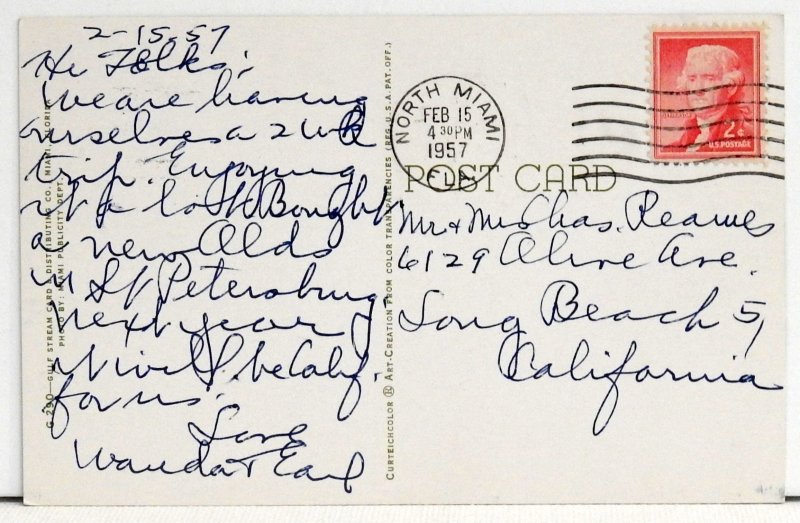 2-15-57
Hi Folks:
We are having
ourselves a 2 wk
trip. Enjoying
it a lot. Bought
a new Olds
in St Petersburg.
Next year
it will be Calif.
for us.
Love
Wanda & Earl
G 290—GULF STREAM CARD & DISTRIBUTING CO., MIAMI, FLORIDA
PHOTO BY: MIAMI PUBLICITY DEPT.
CURTEICHCOLOR ® ART-CREATION FROM COLOR TRANSPARENCIES (REG. U.S.A. PAT. OFF.)
NORTH MIAMI
FEB 15
4 30 PM
1957
FLA.
2¢
U.S. POSTAGE
POST CARD
Mr & Mrs Chas. Reames
6129 Olive Ave.
Long Beach 5,
California